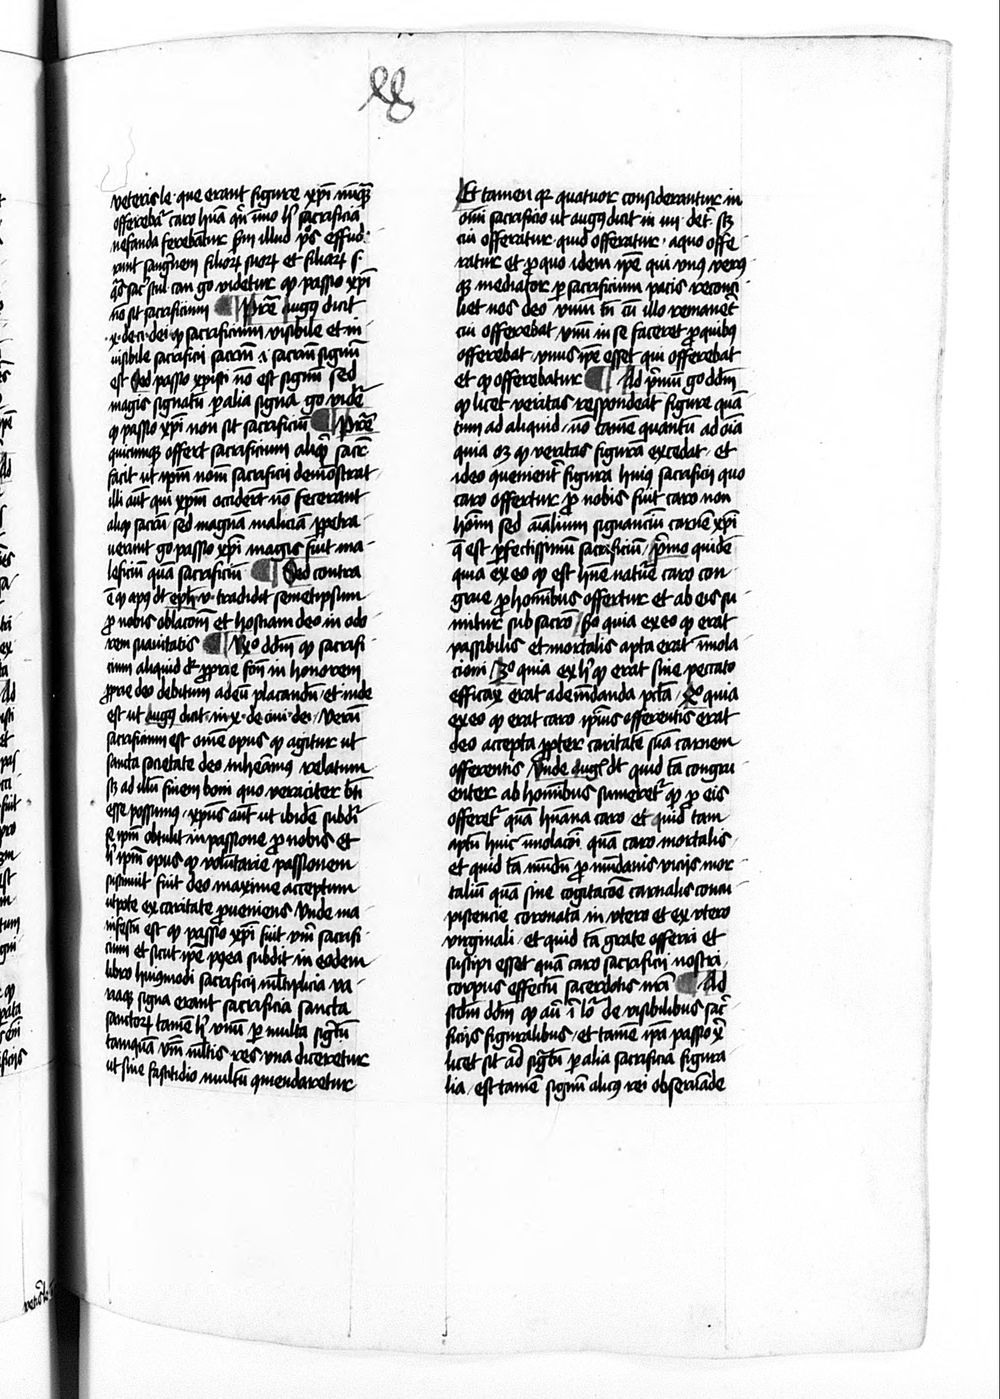 veteris le. que erant figure xp̄i nūq̄
offerebat͛ caro hūa qn̄ īmo hꝫ sacrificia
nefanda ferebātur scḋm illud ps̄ effud
runt sanguīem filioꝝ suoꝝ et filiaꝝ s.
go videtur ꝙ passio xp̄i
nō sit sacrificium ¶ Pret̄e augꝰ dicit
.x. de ci. dei ꝙ sacrificium visibile et in
uisibile sacrificii sacrm̄ .i. sacrū signū
est Sed passio xp̄isti nō est signū sed
magis signatū ꝑ alia signa go videt͛
ꝙ passio xp̄i non sit sacrificiū ¶ Pret̄e
quicumqꝫ offert sacrificium aliqd̄ sacr̄
facit ut ip̄m nom̄ sacrificii demōstrat
illi aūt qui xp̄m occiderūt nō fecerunt
aliqd̄ sacrū sed magnā maliciā ꝑpetra
uerunt go passio xp̄i magis fuit ma
leficiū quā sacrificiū ¶ Sed contra
ē ꝙ apꝰ dt̄ eph̄. v. tradidit semetipsum
ꝓ nobis oblacōm̄ et hostiam deo in odo
rem suauitatis ¶ Rꝰo dd̄m ꝙ sacrifi
cium aliquid dr̄ ꝓprie fcm̄ in honorem
ꝓprie deo debitum ad eū placandū et inde
est ut augꝰ dicit in .x. de ciui. dei. Verū
sacrificium est om̄e opus ꝙ agitur ut
sancta societate deo inhereamꝰ relatum
sꝫ ad illū finem boni quo veraciter bt̄i
esse possumus. xp̄us aūt ut ibidē subdit͛
se ip̄m obtulit in passione ꝓ nobis et
hꝫ ip̄m opus ꝙ volūtarie passionem
sustinuit fuit deo maxime acceptum
utpote ex caritate ꝓueniens Vnde ma
nifestū est ꝙ passio xp̄i fuit verū sacrifi
cium et sicut ip̄e postea subdit in eodem
libro huiꝰmodi sacrificii mltiplicia va
riaqꝫ signa erant sacrificia sancta
sanctoꝝ tamē hꝫ vnū ꝑ multa sig̅tū
tamquā verbis multis res vna diceretur
ut sine fastidio multū ꝯmendaretur
Et tamen qꝫ quatuor considerantur in
om̄i sacrificio ut augꝰ dicit in iiii. de t. sꝫ
cui offeratur. quid offeratur. a quo offe
ratur et ꝓ quo idem ip̄e qui vnꝰ verꝰ
qꝫ mediator ꝑ sacrificium pacis reconci
liet nos deo vnū tn̄ cū illo remaneret͛
cui offerebat vnū in se faceret ꝓ quibꝰ
offerebat. vnus ip̄e esset qui offerebat
et ꝙ offerebatur ¶ Ad p̄mū go dd̄m
ꝙ licet veritas respondeat figure quā
tum ad aliquid. nō tamē quantū ad oīa
quia oꝫ ꝙ veritas figurā excedat. et
ideo ꝯueniēt͛ figura huiꝰ sacrificii quo
caro offertur ꝓ nobis fuit caro non
hoīm sed aīalium signanciū carnē xp̄i
q̄ est ꝑfectissimū sacrificiū. p̄mo quidē
quia ex eo ꝙ est hūane nature caro con
grue ꝓ hominibus offertur et ab eis su
mitur sub sacro / 2o quia ex eo ꝙ erat
passibilis et mortalis apta erat īmola
cioni / 3o quia ex hꝫ ꝙ erat sine peccato
efficax erat ad emūdanda pctā / 4o quia
ex eo ꝙ erat caro ip̄ius offerentis erat
deo accepta ꝓpter caritatē suā carnem
offerentis Vnde augꝰ dt̄ quid tā congru
enter ab hominibus sumeret͛ ꝙ ꝓ eis
offeret͛ quā hūana caro et quid tam
aptū huic īmolacōi quā caro mortalis
et quid tā mūdū ꝓ mūdanis viciis mor
talium quā sine cogitacōe carnalis concu
piscencie coronata in vtero et ex vtero
virginali. et quid tā grate offerri et
suscipi esset quā caro sacrificii nostri
corpus effectū sacerdotis nr̄i ¶ Ad
scḋm dd̄m ꝙ aū. ī lꝫ de visibilibus sac̄
ficiis figuralibus. et tamē ip̄a passio x̄
licet sit ad sig̅tū ꝑ alia sacrificia figura
lia. est tamē signū alicꝰ rei obseruāde